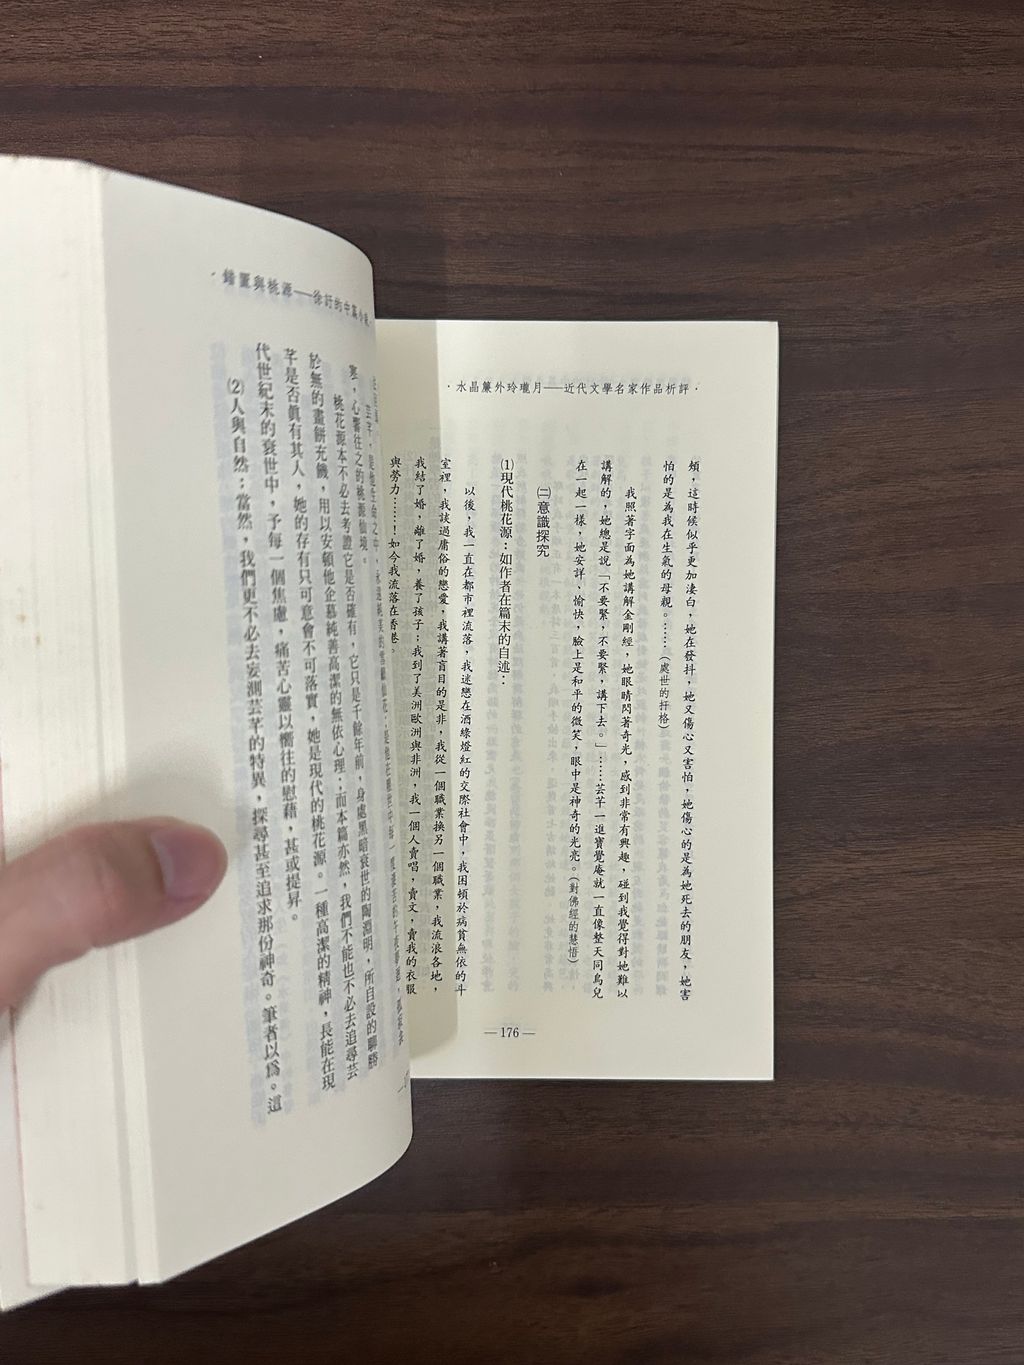 ·水晶簾外玲瓏月——近代文學名家作品析評·
頰，這時候似乎更加淒白，她在發抖，她又傷心又害怕，她傷心的是為她死去的朋友，她害
怕的是為我在生氣的母親。……（處世的扞格）
我照著字面為她講解金剛經，她眼睛閃著奇光，感到非常有興趣，碰到我覺得對她難以
講解的，她總是說「不要緊，不要緊，講下去。」……芸芊一進寶覺庵就一直像整天同鳥兒
在一起一樣，她安詳、愉快，臉上是和平的微笑，眼中是神奇的光亮。（對佛經的慧悟）
㈡意識探究
⑴現代桃花源：如作者在篇末的自述：
以後，我一直在都市裡流落，我迷戀在酒綠燈紅的交際社會中，我困頓於病貧無依的斗
室裡，我談過庸俗的戀愛，我講著盲目的是非，我從一個職業換另一個職業，我流浪各地，
我結了婚，離了婚，養了孩子；我到了美洲歐洲與非洲，我一個人賣唱，賣文，賣我的衣服
與勞力……！如今我流落在香港。
—176—
·錯置與桃源——徐訏的中篇小說
寒，心響往之的桃源仙境。
桃花源本不必去考證它是否確有，它只是千餘年前，身處黑暗衰世的陶淵明，所自設的聊勝
於無的畫餅充饑，用以安頓他企慕純善高潔的無依心理；而本篇亦然，我們不能也不必去追尋芸
芊是否眞有其人，她的存有只可意會不可落實，她是現代的桃花源。一種高潔的精神，長能在現
代世紀末的衰世中，予每一個焦慮，痛苦心靈以嚮往的慰藉，甚或提昇。
⑵人與自然；當然，我們更不必去妄測芸芊的特異，探尋甚至追求那份神奇。筆者以爲。這